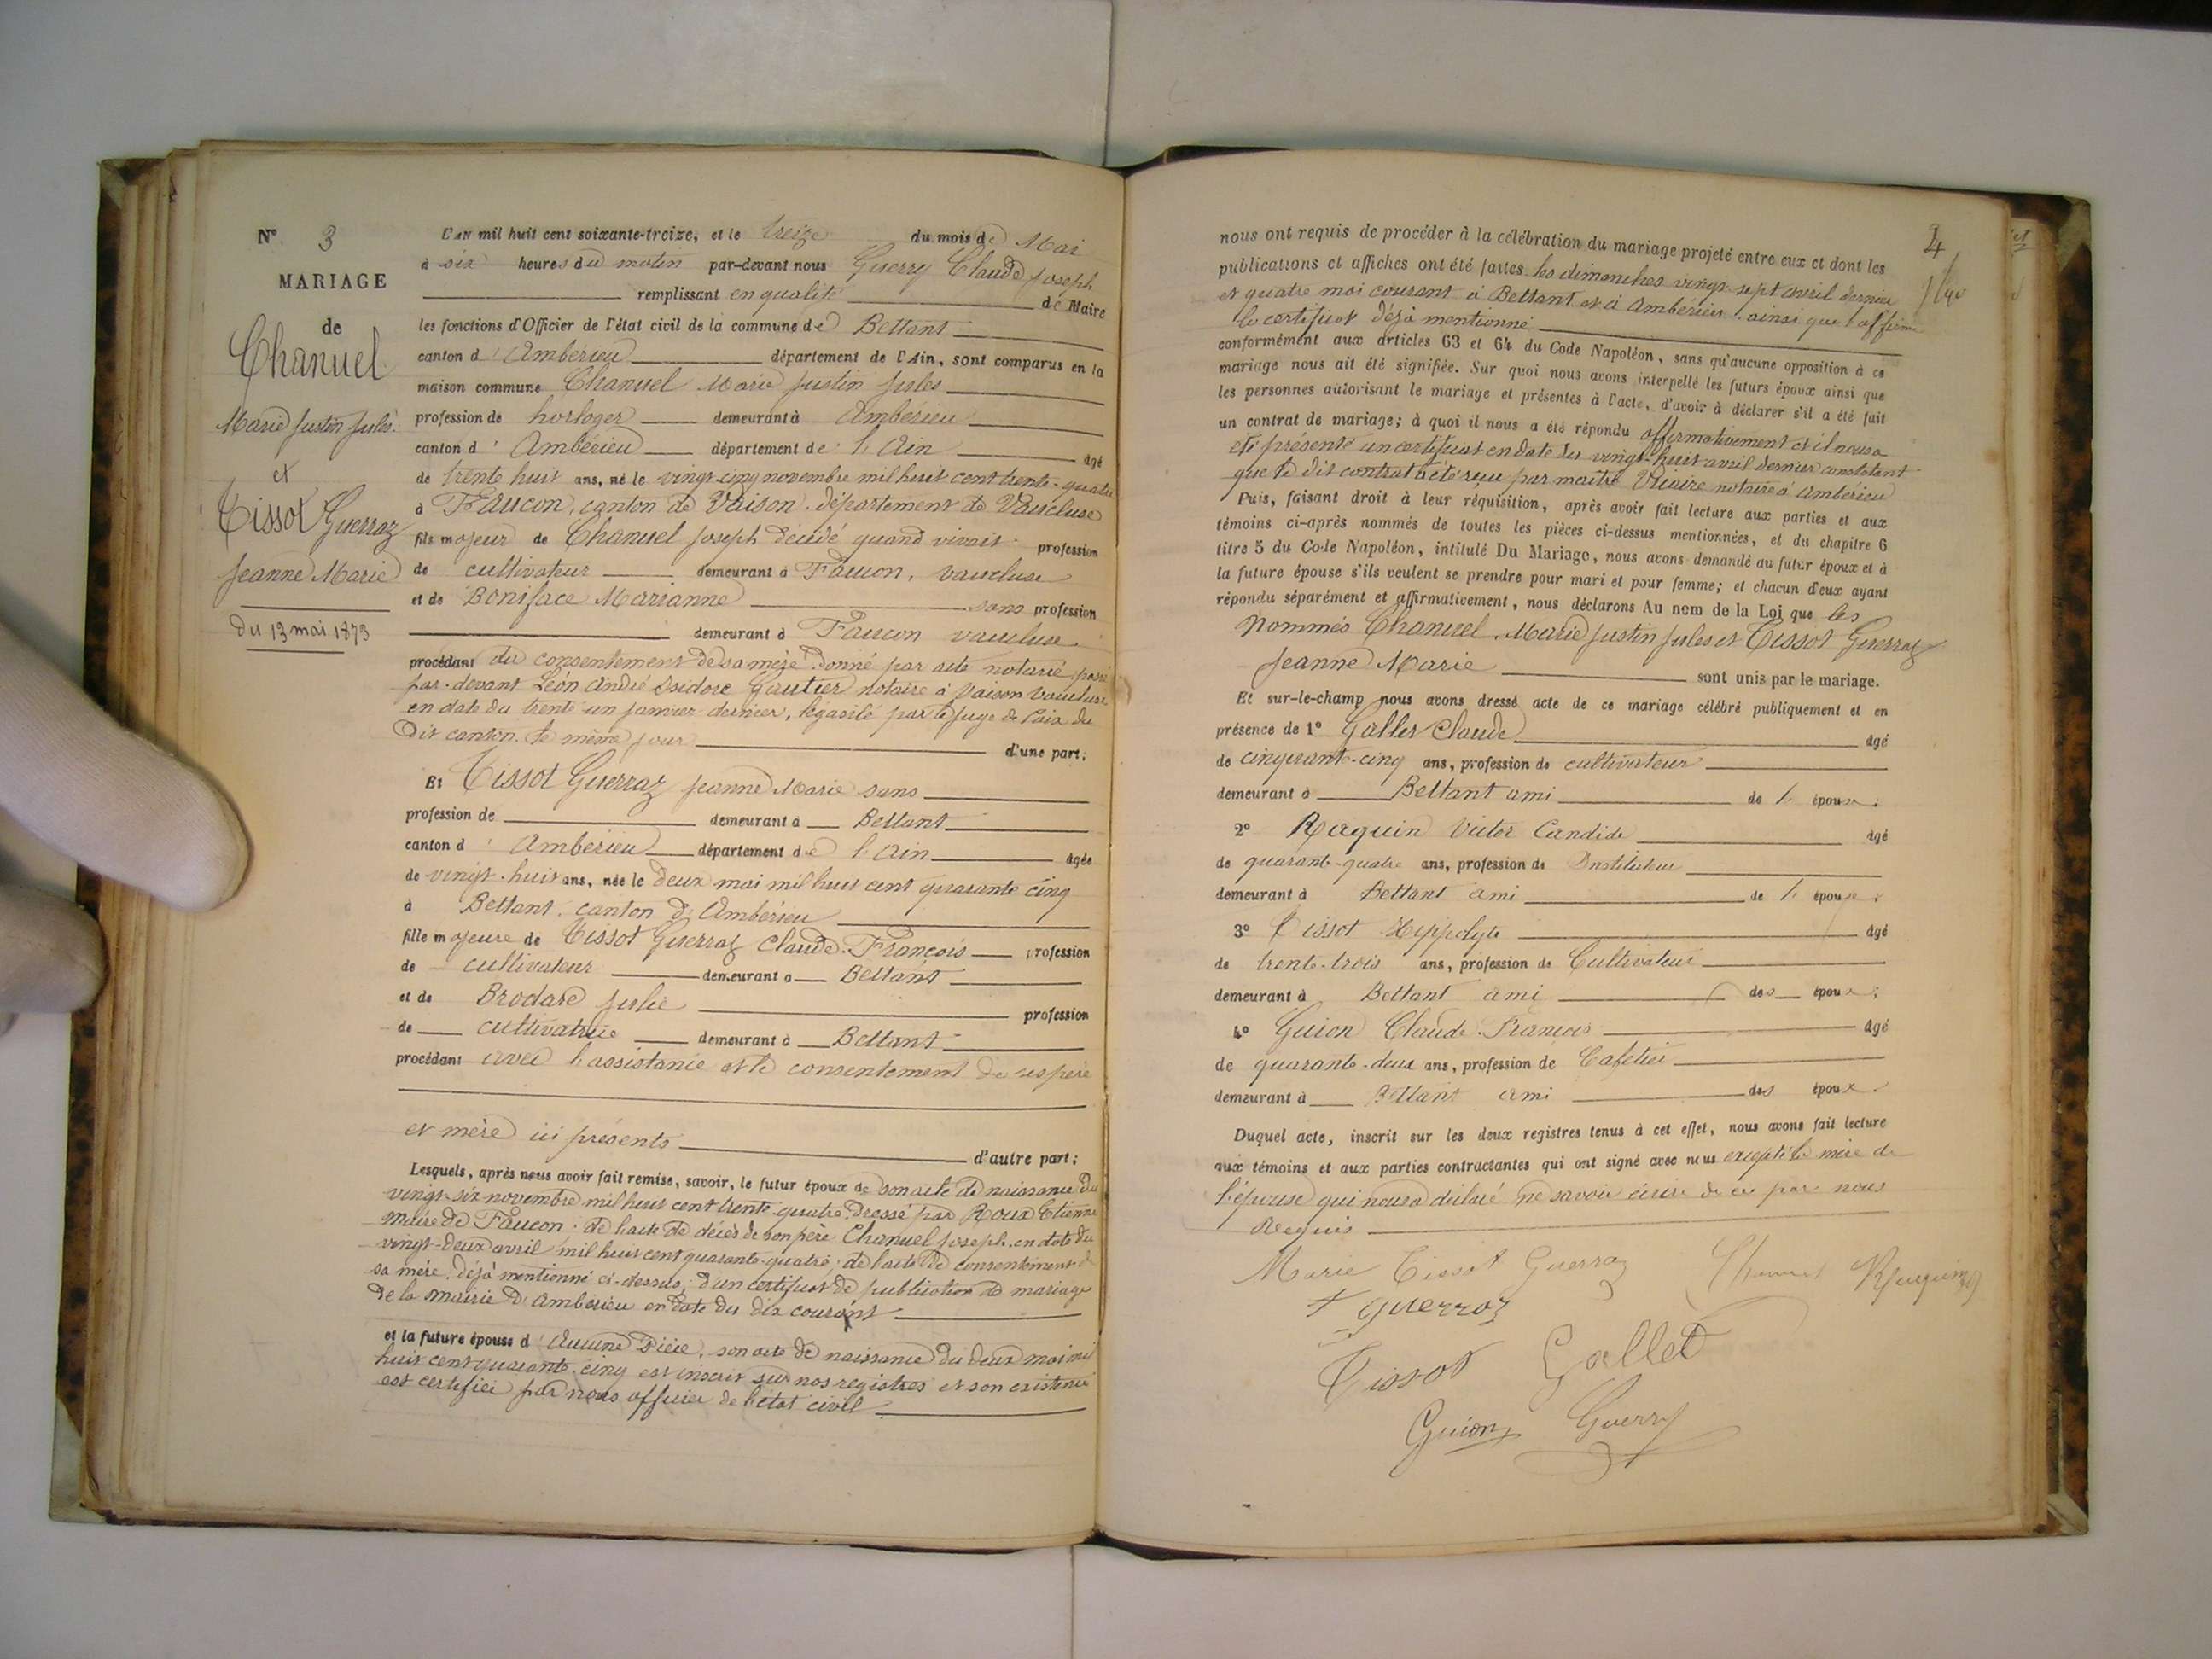 N° 3
MARIAGE
de
Chanuel
Marie Justin Jules.
et
Tissot Guerraz
Jeanne Marie
Du 13 mai 1873
L'AN mil huit cent soixante-treize, et le treize du mois de Mai
à six heures du matin par-devant nous Guerry Claude Joseph
remplissant en qualité de Maire
les fonctions d'Officier de l'état civil de la commune de Bettant
canton d'Ambérieu département de l'Ain, sont comparus en la
maison commune Chanuel Marie Justin Jules
profession de horloger demeurant à Ambérieu
canton d'Ambérieu département de l'Ain âgé
de trente huit ans, né le vingt-cinq novembre mil huit cent trente-quatre
à Faucon, canton de Vaison, département de Vaucluse
fils majeur de Chanuel Joseph décédé quand vivait profession
de cultivateur demeurant à Faucon, vaucluse
et de Boniface Marianne sans profession
demeurant à Faucon vaucluse
procédant du consentement de sa mère donné par acte notarié passé
par-devant Léon André Isidore Gautier notaire à Vaison Vaucluse
en date du trente un janvier dernier, légasilé par le juge de Paix du
Dit canton. le même jour d'une part;
Et Tissot Guerraz Jeanne Marie sans
profession de demeurant à Bettant
canton d'Ambérieu département de l'Ain âgée
de vingt-huit ans, née le deux mai mil huit cent quarante cinq
à Bettant, canton d'Ambérieu
fille majeure de Tissot Guerraz Claude-François profession
de cultivateur demeurant à Bettant
et de Brodard Julie profession
de cultivatrice demeurant à Bettant
procédant avec l'assistance et le consentement de ses père
et mère ici présents d'autre part;
Lesquels, après nous avoir fait remise, savoir, le futur époux de son acte de naissance du
vingt-six novembre mil huit cent trente-quatre. Dressé par Roux Etienne
maire de Faucon. de l'acte de décès de son père Chanuel Joseph, en date du
vingt-deux avril mil huit cent quarante-quatre; de l'acte de consentement de
sa mère, déjà mentionné ci-dessus; d'un certificat de publication de mariage
de la mairie d'Ambérieu en date du dix courant
et la future épouse d'Aucune Pièce, son acte de naissance du deux mai mil
huit cent quarante-cinq est inscrit sur nos registres et son existence
est certifiée par nous officier de l'état civil
4
nous ont requis de procéder à la célébration du mariage projeté entre eux et dont les
publications et affiches ont été faites les dimanches vingt-sept avril dernier
et quatre mai courant à Bettant et à Ambérieu. ainsi que l'affirme
le certificat déjà mentionné
conformément aux articles 63 et 64 du Code Napoléon, sans qu'aucune opposition à ce
mariage nous ait été signifiée. Sur quoi nous avons interpellé les futurs époux ainsi que
les personnes autorisant le mariage et présentes à l'acte, d'avoir à déclarer s'il a été fait
un contrat de mariage; à quoi il nous a été répondu affirmativement et il nous a
été présenté un certificat en date du vingt-huit avril dernier constatant
que le dit contrat a été reçu par maître notaire à Ambérieu
Puis, faisant droit à leur réquisition, après avoir fait lecture aux parties et aux
témoins ci-après nommés de toutes les pièces ci-dessus mentionnées, et du chapitre 6
titre 5 du Code Napoléon, intitulé Du Mariage, nous avons demandé au futur époux et à
la future épouse s'ils veulent se prendre pour mari et pour femme; et chacun d'eux ayant
répondu séparément et affirmativement, nous déclarons Au nom de la Loi que les
Nommés Chanuel, Marie Justin Jules et Tissot Guerraz
Jeanne Marie sont unis par le mariage.
Et sur-le-champ nous avons dressé acte de ce mariage célébré publiquement et en
présence de 1° Gallet Claude âgé
de cinquante-cinq ans, profession de cultivateur
demeurant à Bettant ami de l' époux;
2° Raquin Victor Candide âgé
de quarante-quatre ans, profession de Instituteur
demeurant à Bettant ami de l' épouse;
3° Tissot Hippolyte âgé
de trente-trois ans, profession de Cultivateur
demeurant à Bettant ami des époux;
4° Guion Claude-François âgé
de quarante-deux ans, profession de Cafetier
demeurant à Bettant ami des époux.
Duquel acte, inscrit sur les deux registres tenus à cet effet, nous avons fait lecture
aux témoins et aux parties contractantes qui ont signé avec nous excepté la mère de
l'épouse qui nous a déclaré ne savoir écrire de ce par nous
Requis
Marie Tissot Guerraz Chanuel
guerraz
Tissot Gallet
Guion Guerry